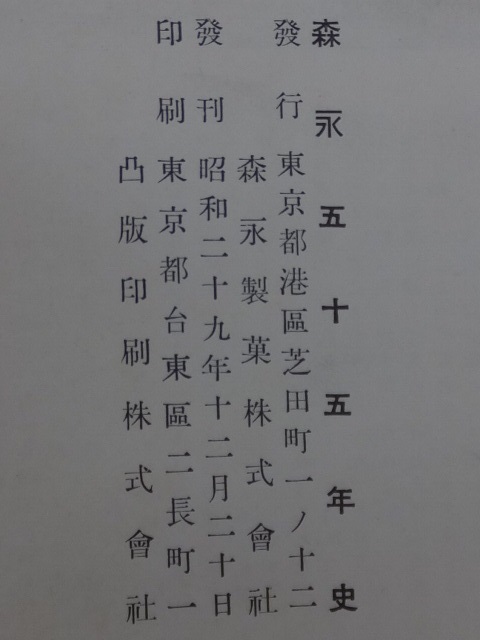 森永五十五年史
發行 東京都港區芝田町一ノ十二
森永製菓株式會社
發刊 昭和二十九年十二月二十日
印刷 東京都台東區二長町一
凸版印刷株式會社